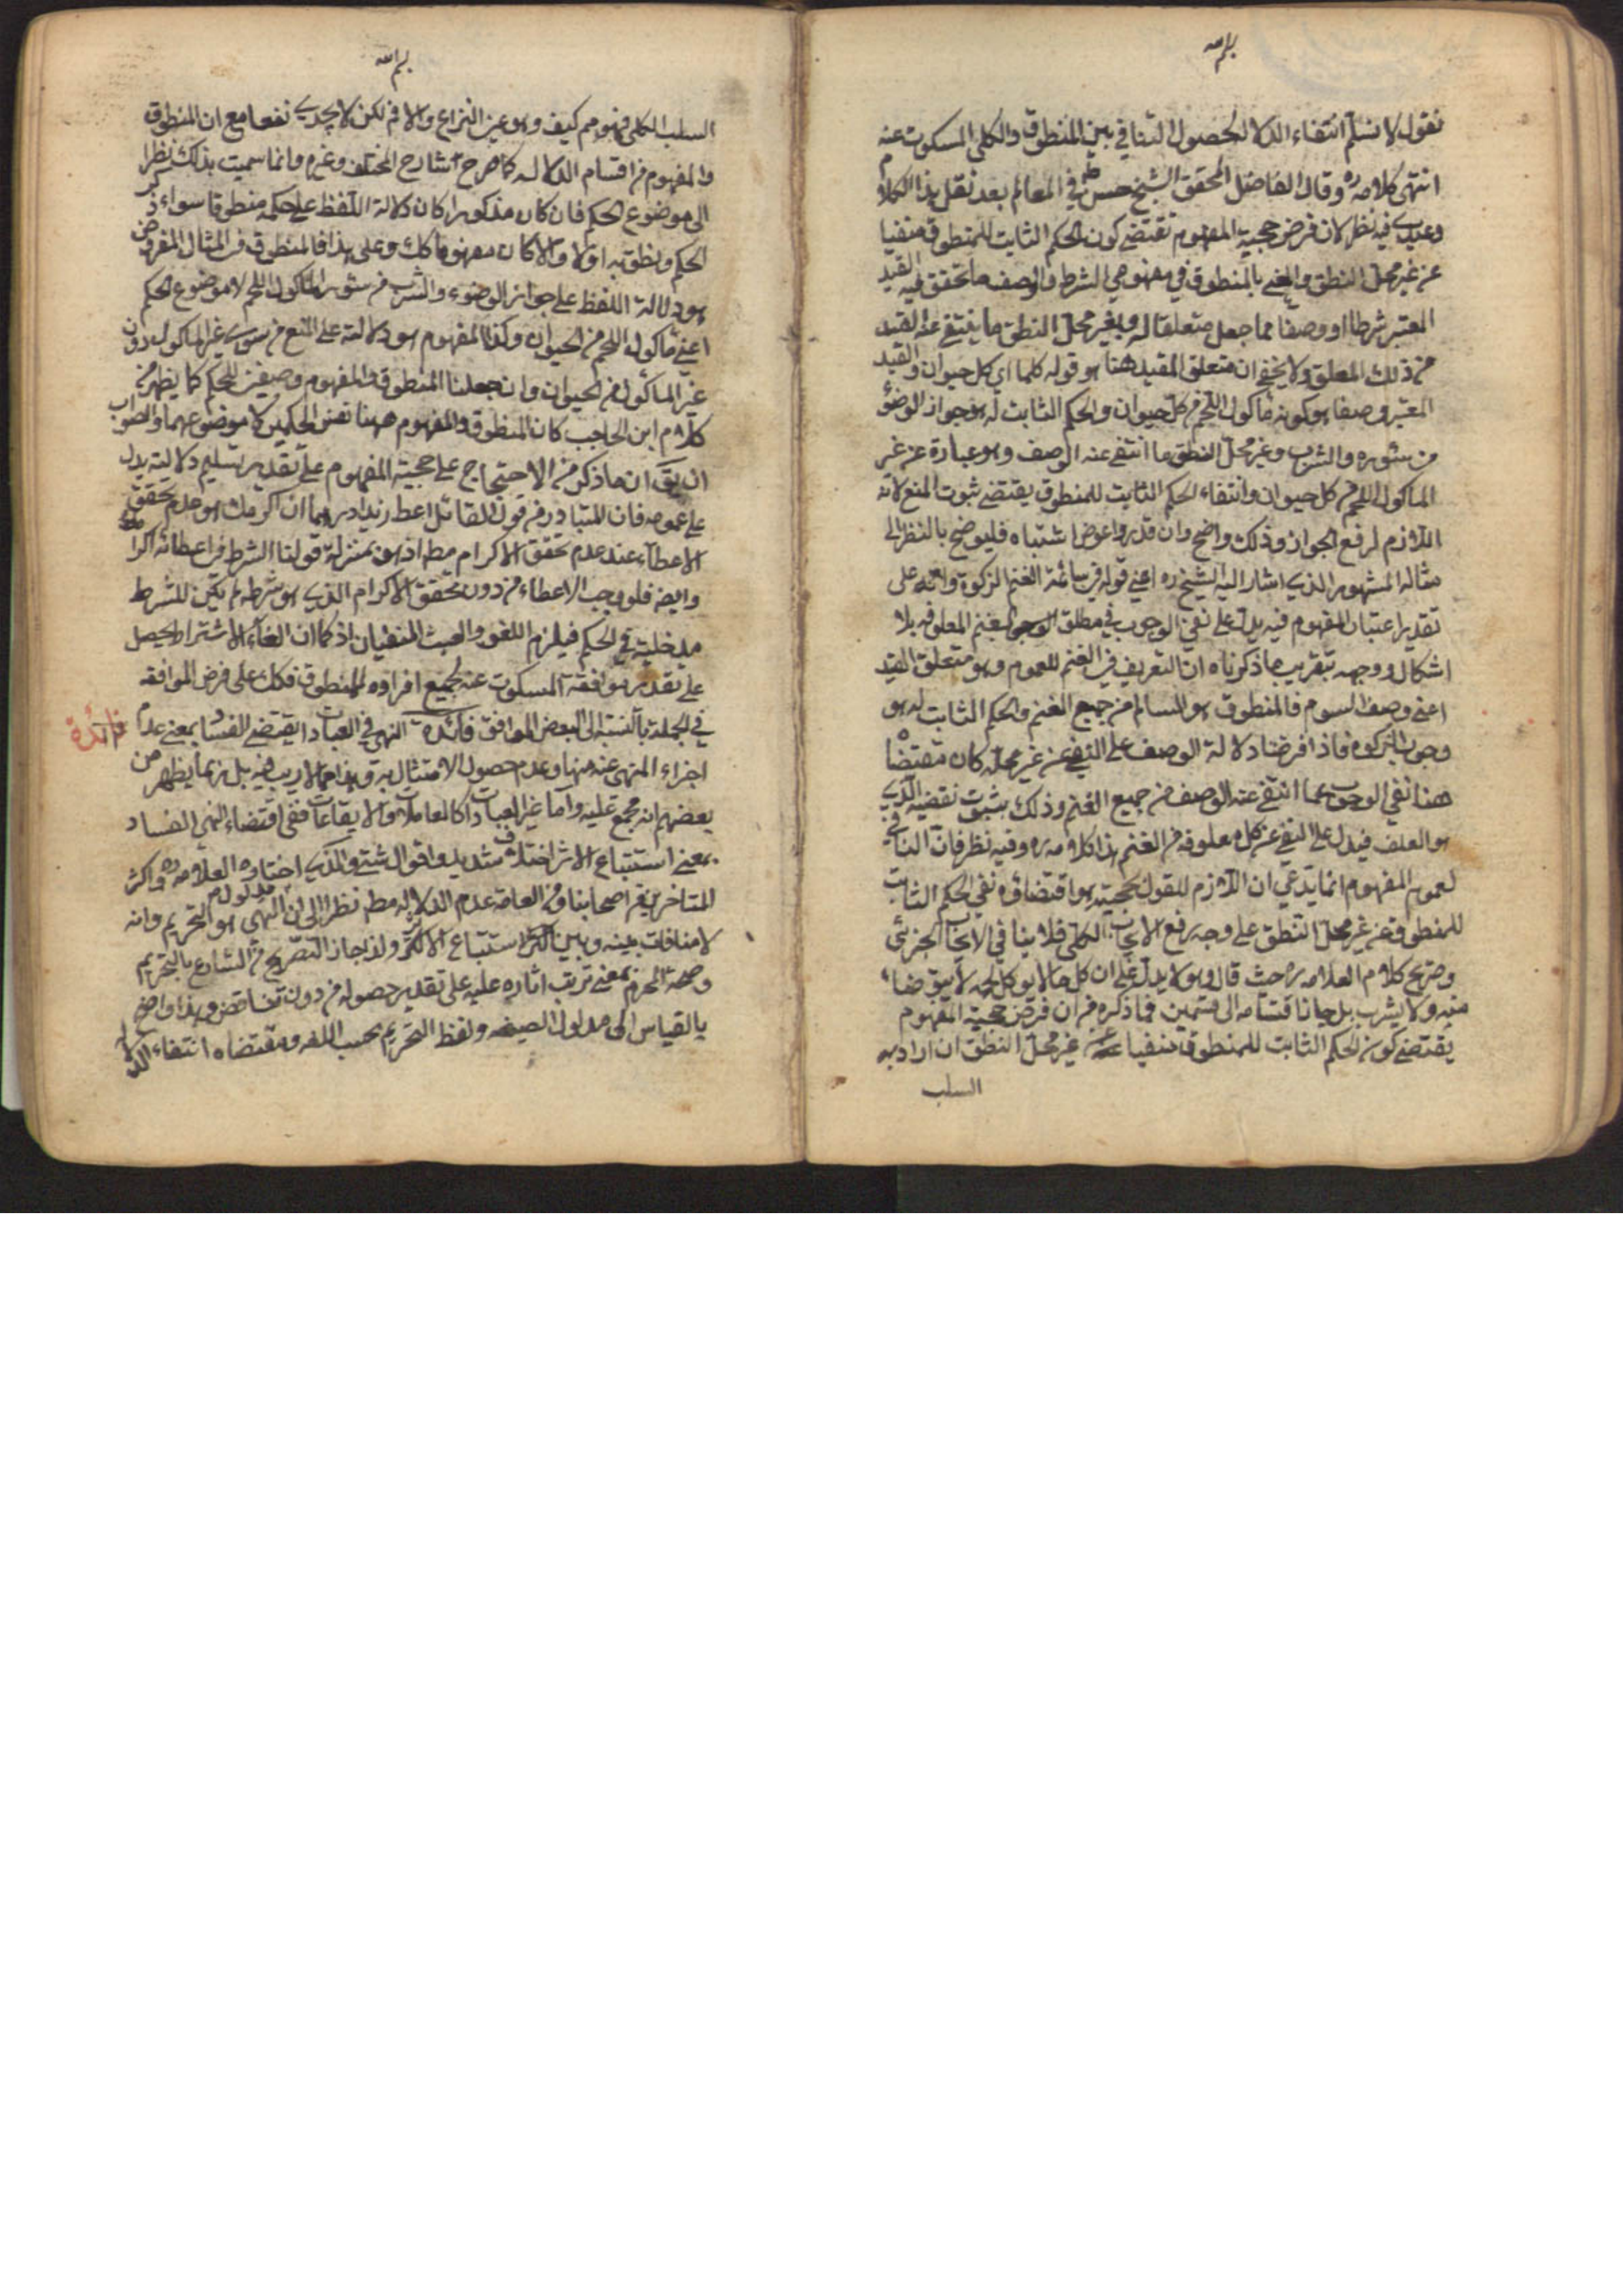 بسم الله
نقول لا نسلم انتفاء الدلالة لحصول التنافي بين المنطوق والكلي المسكوت عنه
انتهى كلامه ره وقال الفاضل المحقق الشيخ حسن في المعالم بعد نقل هذا الكلام
وعندي فيه نظر لان فرض حجية المفهوم تقتضي كون الحكم الثابت للمنطوق منفيا
عن غير محل النطق والمعني بالمنطوق في مفهومي الشرط والوصف ما تحقق فيه القيد
المعتبر شرطا او وصفا مما جعل متعلقا له وبغير محل النطق ما ينتفي عنه القيد
من ذلك المعلق ولا يخفى ان متعلق القيد هنا هو قوله كلما اي كل حيوان والقيد
المعتبر وصفا هو كونه مأكول اللحم من كل حيوان والحكم الثابت له هو جواز الوضؤ
من سئوره والشرب وغير محل النطق ما انتفى عنه الوصف وهو عبارة عن غير
المأكول اللحم من كل حيوان وانتفاء الحكم الثابت للمنطوق يقتضي ثبوت المنع لانه
اللازم لرفع الجواز وذلك واضح وان قدر عروض اشتباه فليوضح بالنظر الى
مثاله المشهور الذي اشار اليه الشيخ ره اعني قوله في سائمة الغنم الزكوة وانه على
تقدير اعتبار المفهوم فيه يدل على نفي الوجوب في مطلق الغنم المعلوفه بلا
اشكال ووجهه بتقريب ما ذكرناه ان التعريف في الغنم للعموم وهو متعلق القيد
اعني وصف السوم فالمنطوق هو السائم من جميع الغنم والحكم الثابت له هو
وجوب الزكوة فاذا فرضنا دلالة الوصف على النفي عن غير محله كان مقتضاه
هنا نفي الوجوب عما انتفى عنه الوصف من جميع الغنم وذلك بثبوت نقيضه الذي
هو العلف فيدل على النفي عن كل معلوفه من الغنم هذا كلامه ره وفيه نظر فان النافي
لعموم المفهوم انما يدعي ان اللازم للقول بحجيته هو اقتضاؤه نفي الحكم الثابت
للمنطوق عن غير محل النطق على وجه رفع الايجاب الكلي فلا ينافي الايجاب الجزئي
وصريح كلام العلامه ره حيث قال وهو لا يدل على ان كل ما لا يوكل لحمه لا يتوضأ
منه ولا يشرب بل جاز انقسامه الى قسمين فما ذكره من ان فرض حجية المفهوم
يقتضي كون الحكم الثابت للمنطوق منفيا عن غير محل النطق ان اراد به
السلب
بسم الله
السلب الكلي فهو مم كيف وهو عين النزاع والا فم لكن لا يجدي نفعا مع ان المنطوق
والمفهوم من اقسام الدلاله كما صرح شارح المختصر وغيره وانما سميت بذلك نظرا
الى موضوع الحكم فان كان مذكورا كان دلالة اللفظ على حكمه منطوقا سواء ذكر
الحكم ونطق به اولا والا كان مفهوما كك وعلى هذا فالمنطوق في المثال المفروض
هو دلالة اللفظ على جواز الوضوء والشرب من سئور المأكول اللحم لا موضوع الحكم
اعني مأكول اللحم من الحيوان وكذا المفهوم هو دلالته على المنع من سؤر غير المأكول دون
غير المأكول من الحيوان وان جعلنا المنطوق والمفهوم وصفين للحكم كما يظهر من
كلام ابن الحاجب كان المنطوق والمفهوم ههنا نفس الحكمين لا موضوعهما والصواب
ان يق ان ما ذكر من الاحتجاج على حجية المفهوم على تقدير تسليم دلالته يدل
على عمومه فان المتبادر من قول القائل اعط زيدا درهما ان اكرمك هو عدم تحقق
الاعطاء عند عدم تحقق الاكرام مط اذ هو بمنزلة قولنا الشرط في اعطائه اكرامك
وايضه فلو وجب الاعطاء من دون تحقق الاكرام الذي هو شرطه لم يكن للشرط
مدخلية في الحكم فيلزم اللغو والعبث المنفيان اذ كما ان الغاء الاشتراط يحصل
على تقدير موافقة المسكوت عنه بجميع افراده للمنطوق فكك على فرض الموافقه
في الجملة بالنسبة الى البعض الموافق فائدة النهي في العبادات يقتضي الفساد بمعنى عدم
فائدة
اجزاء المنهي عنه منها وعدم حصول الامتثال به وهذا مما لا ريب فيه بل ربما يظهر من
بعضهم انه مجمع عليه واما غير العبادات كالمعاملات والايقاعات ففي اقتضاء النهي الفساد
بمعنى استتباع الاثر اختلاف شديد واقوال شتى والذي اختاره العلامه ره واكثر
المتاخرين من اصحابنا ومن العامة عدم الدلاله مط نظرا الى ان مدلول النهي هو التحريم وانه
لا منافات بينه وبين استتباع الاثر ولذا جاز التصريح من الشارع بالتحريم
وصحة المحرم بمعنى ترتب اثاره عليه على تقدير حصوله من دون تناقض وهذا واضح
بالقياس الى مدلول الصيغه ولفظ التحريم بحسب اللغه ومقتضاه انتفاء الدلالة